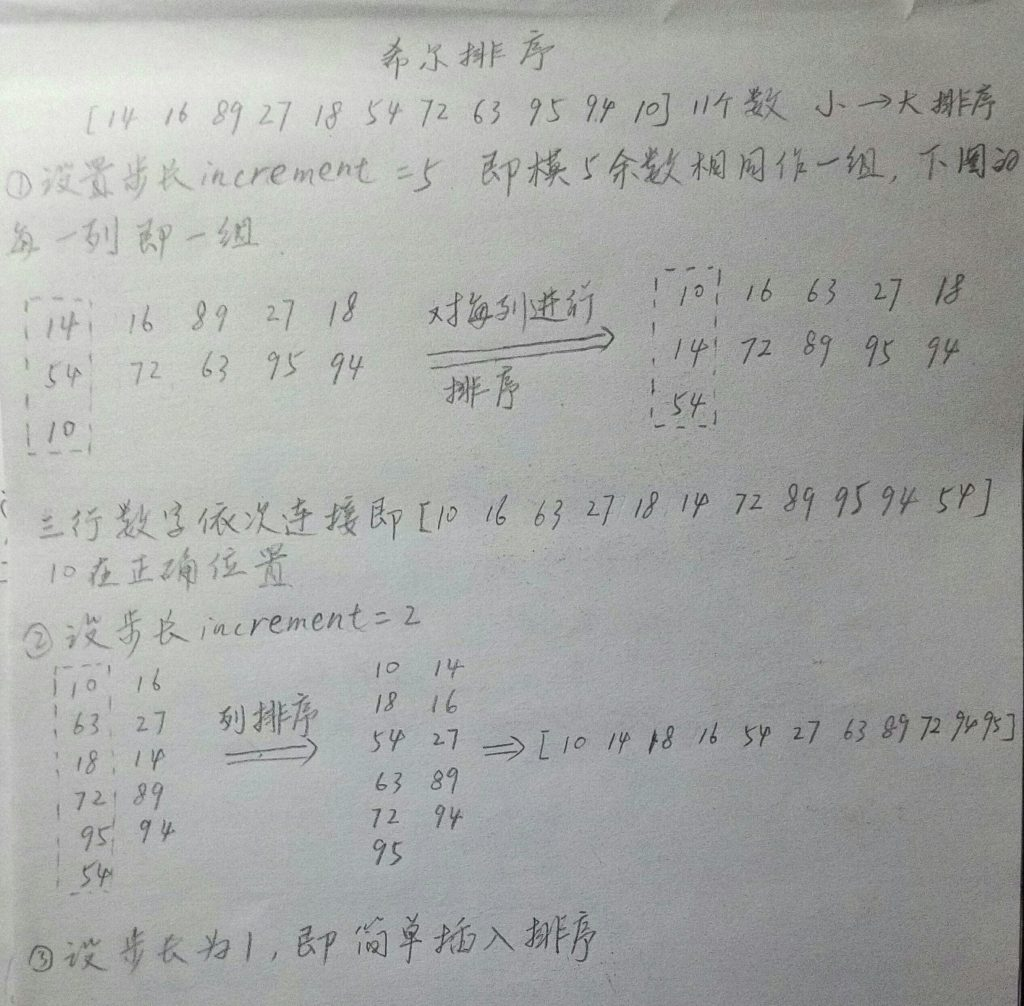 希尔排序
[14 16 89 27 18 54 72 63 95 94 10] 11个数 小→大排序
①设置步长increment=5 即模5余数相同作一组,下图的
每一列即一组.
14 16 89 27 18
54 72 63 95 94
10
对每列进行
排序
10 16 63 27 18
14 72 89 95 94
54
三行数字依次连接即[10 16 63 27 18 14 72 89 95 94 54]
10在正确位置
②设步长increment=2
10 16
63 27
18 14
72 89
95 94
54
列排序
10 14
18 16
54 27
63 89
72 94
95
⇒[10 14 18 16 54 27 63 89 72 94 95]
③设步长为1,即简单插入排序